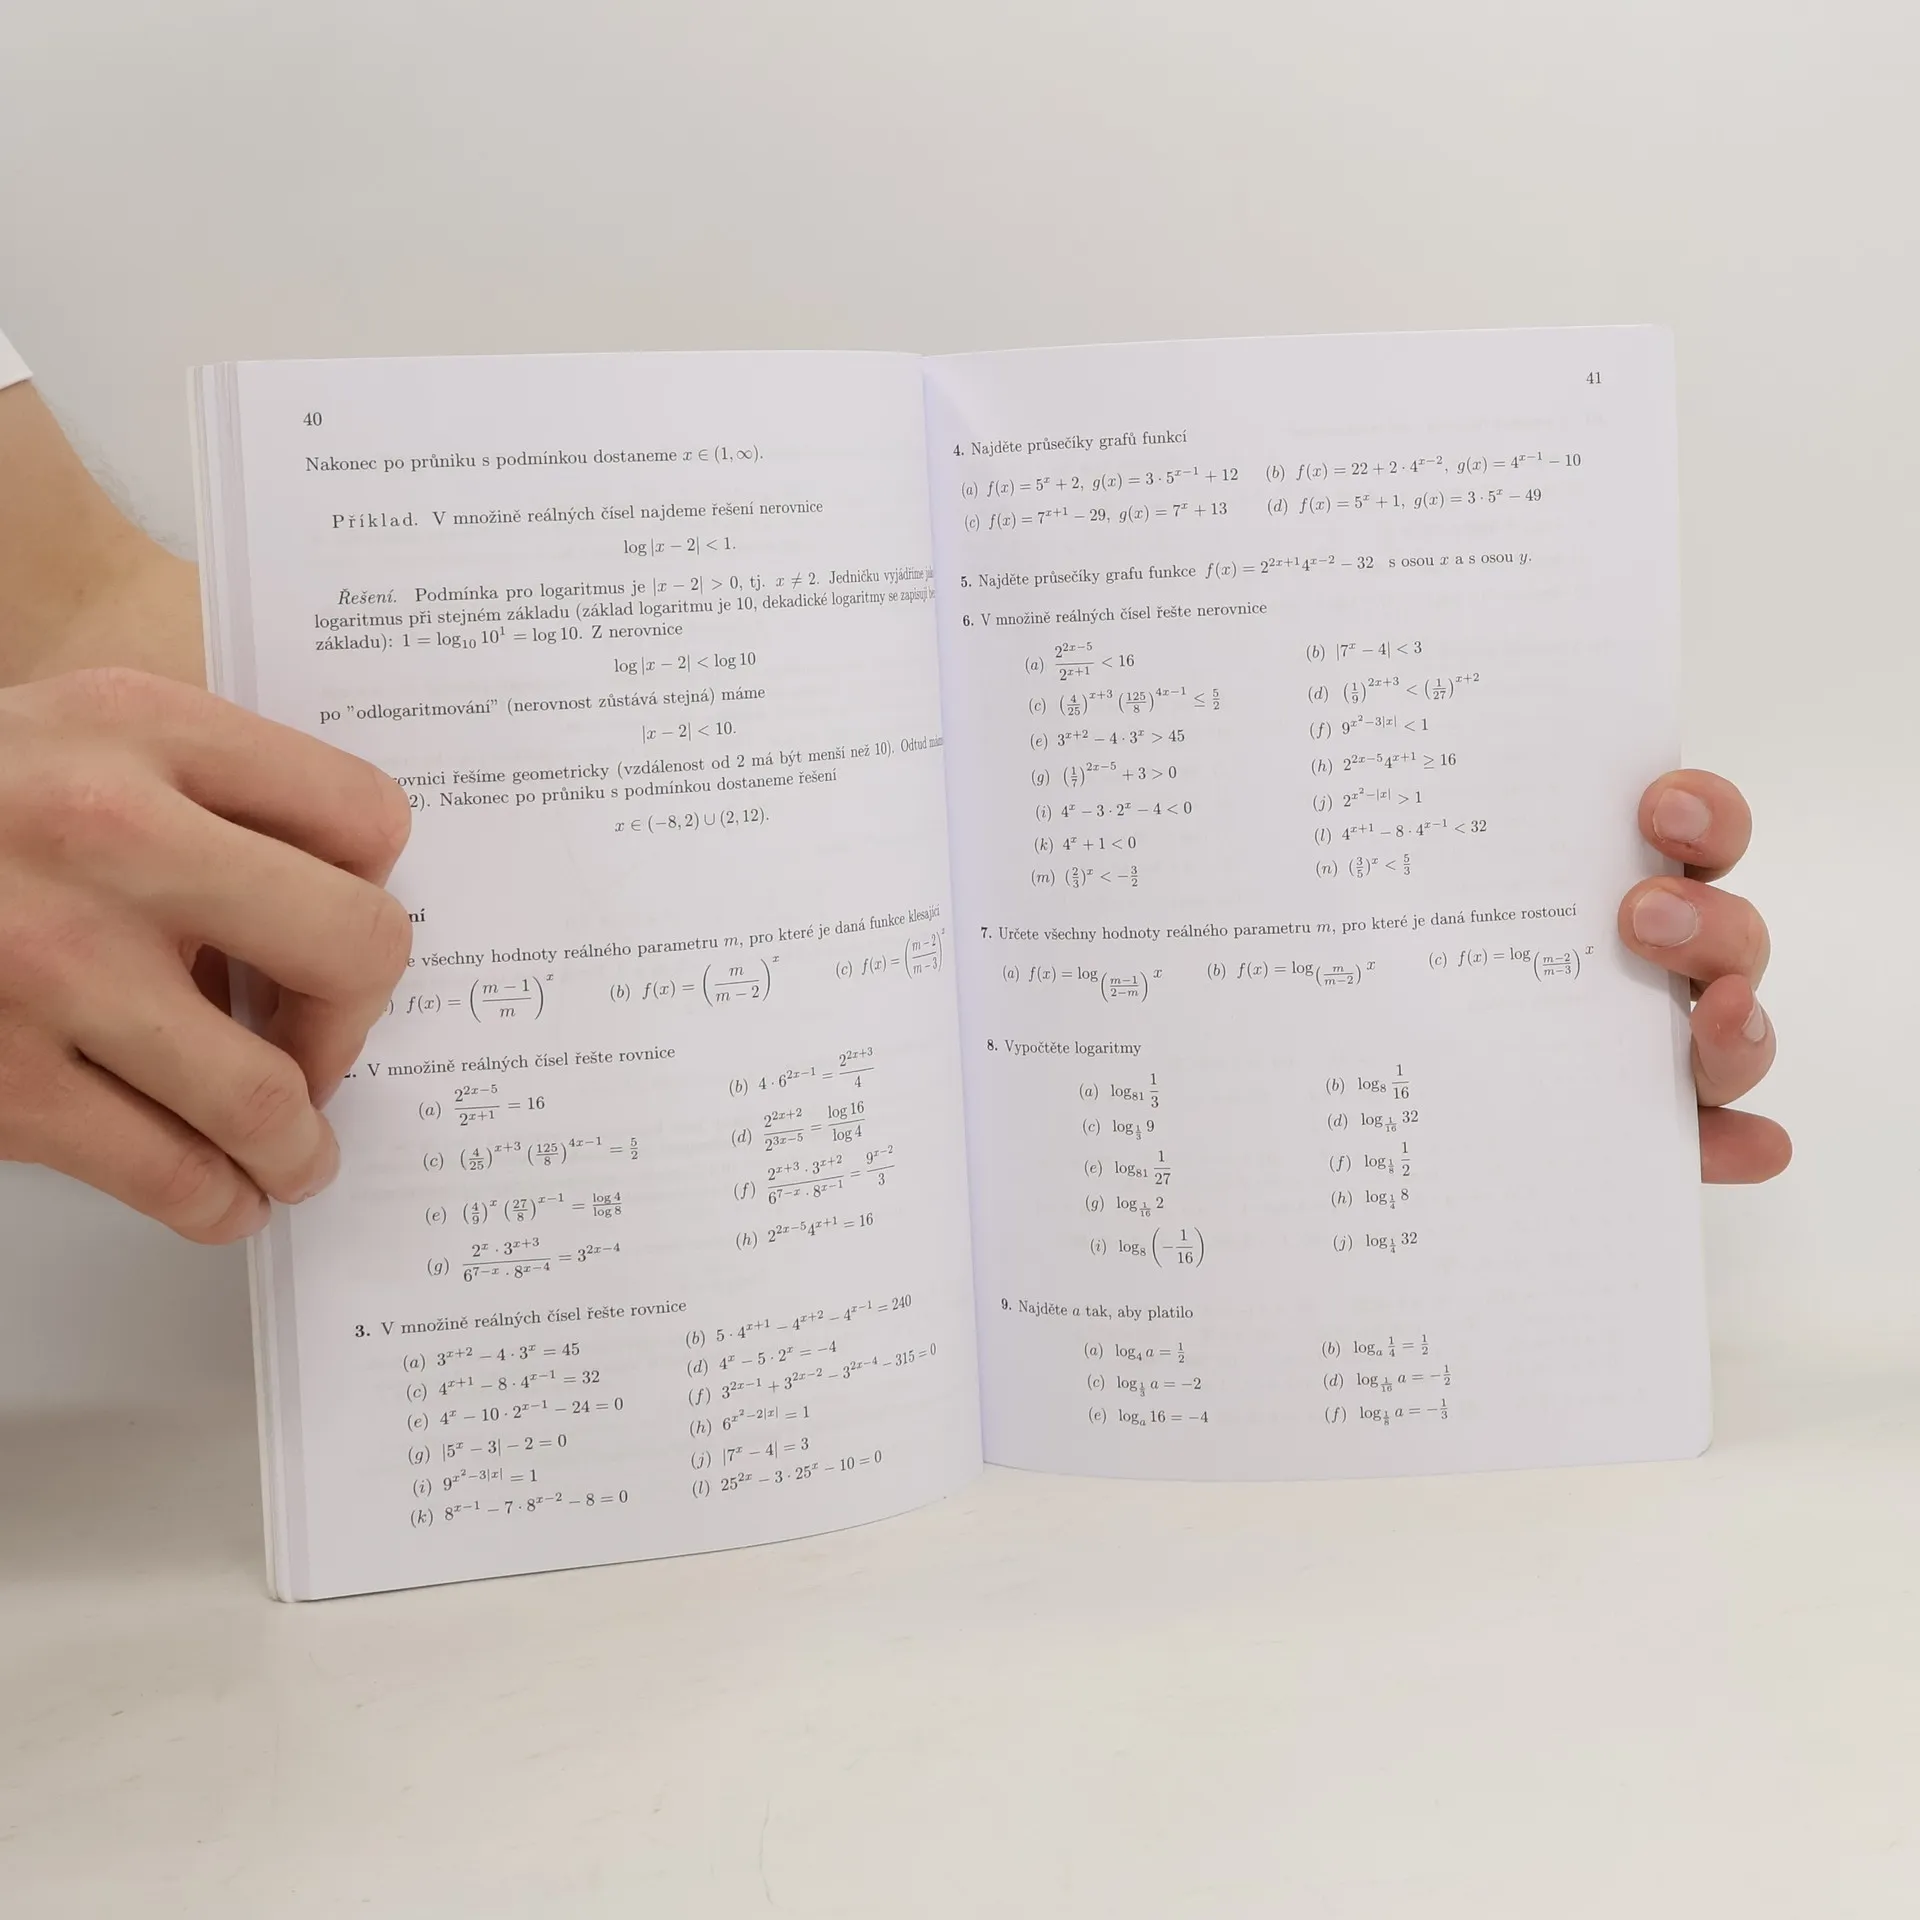 40
Nakonec po průniku s podmínkou dostaneme x ∈ (1, ∞).
Příklad. V množině reálných čísel najdeme řešení nerovnice
log |x − 2| < 1.
Řešení. Podmínka pro logaritmus je |x − 2| > 0, tj. x ≠ 2. Jedničku vyjádříme
logaritmus při stejném základu (základ logaritmu je 10, dekadické logaritmy se zapisují
základu): 1 = log₁₀ 10¹ = log 10. Z nerovnice
log |x − 2| < log 10
po ”odlogaritmování” (nerovnost zůstává stejná) máme
|x − 2| < 10.
rovnici řešíme geometricky (vzdálenost od 2 má být menší než 10). Odtud
2). Nakonec po průniku s podmínkou dostaneme řešení
x ∈ (−8, 2) ∪ (2, 12).
ní
e všechny hodnoty reálného parametru m, pro které je daná funkce klesající
) f(x) = ((m − 1)/m)^x (b) f(x) = (m/(m − 2))^x (c) f(x) = ((m − 2)/(m − 3))^x
. V množině reálných čísel řešte rovnice
(a) 2^(2x−5)/2^(x+1) = 16 (b) 4 · 6^(2x−1) = 2^(2x+3)/4
(c) (4/25)^(x+3) (125/8)^(4x−1) = 5/2 (d) 2^(2x+2)/2^(3x−5) = log 16/log 4
(e) (4/9)^x (27/8)^(x−1) = log 4/log 8 (f) (2^(x+3) · 3^(x+2))/(6^(7−x) · 8^(x−1)) = 9^(x−2)/3
(g) (2^x · 3^(x+3))/(6^(7−x) · 8^(x−4)) = 3^(2x−4) (h) 2^(2x−5) 4^(x+1) = 16
3. V množině reálných čísel řešte rovnice
(a) 3^(x+2) − 4 · 3^x = 45 (b) 5 · 4^(x+1) − 4^(x+2) − 4^(x−1) = 240
(c) 4^(x+1) − 8 · 4^(x−1) = 32 (d) 4^x − 5 · 2^x = −4
(e) 4^x − 10 · 2^(x−1) − 24 = 0 (f) 3^(2x−1) + 3^(2x−2) − 3^(2x−4) − 315 = 0
(g) |5^x − 3| − 2 = 0 (h) 6^(x²−2|x|) = 1
(i) 9^(x²−3|x|) = 1 (j) |7^x − 4| = 3
(k) 8^(x−1) − 7 · 8^(x−2) − 8 = 0 (l) 25^(2x) − 3 · 25^x − 10 = 0
41
4. Najděte průsečíky grafů funkcí
(a) f(x) = 5^x + 2, g(x) = 3 · 5^(x−1) + 12 (b) f(x) = 22 + 2 · 4^(x−2), g(x) = 4^(x−1) − 10
(c) f(x) = 7^(x+1) − 29, g(x) = 7^x + 13 (d) f(x) = 5^x + 1, g(x) = 3 · 5^x − 49
5. Najděte průsečíky grafu funkce f(x) = 2^(2x+1) 4^(x−2) − 32 s osou x a s osou y.
6. V množině reálných čísel řešte nerovnice
(a) 2^(2x−5)/2^(x+1) < 16 (b) |7^x − 4| < 3
(c) (4/25)^(x+3) (125/8)^(4x−1) ≤ 5/2 (d) (1/9)^(2x+3) < (1/27)^(x+2)
(e) 3^(x+2) − 4 · 3^x > 45 (f) 9^(x²−3|x|) < 1
(g) (1/7)^(2x−5) + 3 > 0 (h) 2^(2x−5) 4^(x+1) ≥ 16
(i) 4^x − 3 · 2^x − 4 < 0 (j) 2^(x²−|x|) > 1
(k) 4^x + 1 < 0 (l) 4^(x+1) − 8 · 4^(x−1) < 32
(m) (2/3)^x < −3/2 (n) (3/5)^x < 5/3
7. Určete všechny hodnoty reálného parametru m, pro které je daná funkce rostoucí
(a) f(x) = log_((m−1)/(2−m)) x (b) f(x) = log_(m/(m−2)) x (c) f(x) = log_((m−2)/(m−3)) x
8. Vypočtěte logaritmy
(a) log₈₁ 1/3 (b) log₈ 1/16
(c) log_(1/3) 9 (d) log_(1/16) 32
(e) log₈₁ 1/27 (f) log_(1/8) 1/2
(g) log_(1/16) 2 (h) log_(1/4) 8
(i) log₈ (−1/16) (j) log_(1/4) 32
9. Najděte a tak, aby platilo
(a) log₄ a = 1/2 (b) log_a 1/4 = 1/2
(c) log_(1/3) a = −2 (d) log_(1/16) a = −1/2
(e) log_a 16 = −4 (f) log_(1/8) a = −1/3